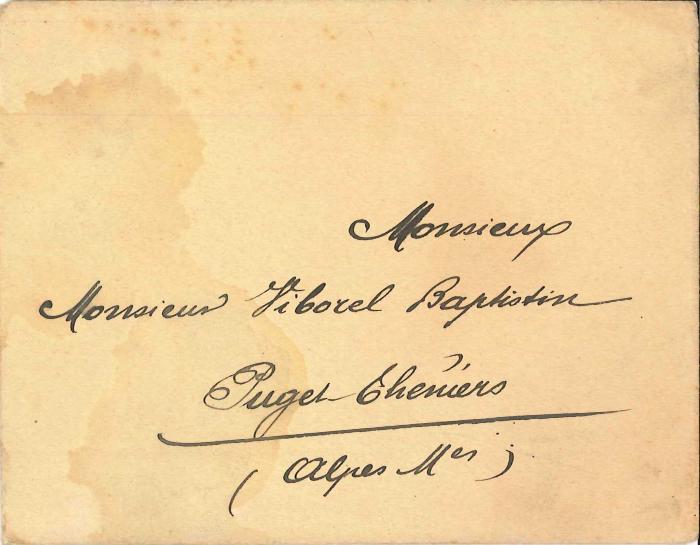 Monsieur
Monsieur Viborel Baptistin
Puget-Théniers
(Alpes Mes)